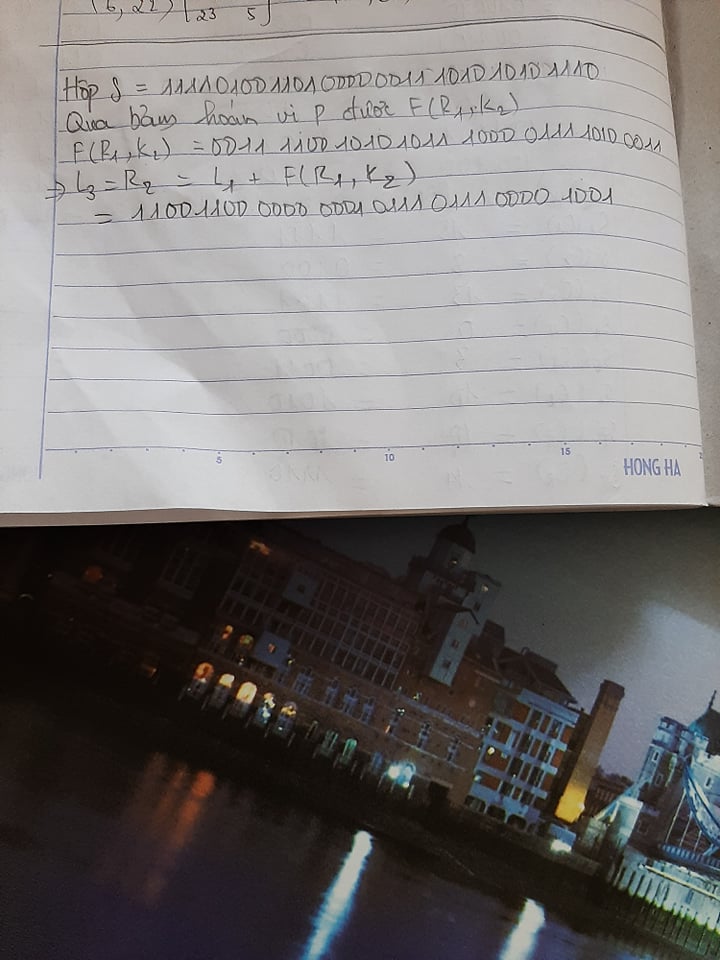 23 5
Hộp S = 11110100110100000011 1010 1010 1110
Qua bảng hoán vị P được F(R1,K2)
F(R1,K2) = 0011 1100 1010 1011 1000 0111 1010 0011
=> L3 = R2 = L1 + F(R1,K2)
= 11001100 0000 0001 0111 0111 0000 1001
5 10 15
HONG HA